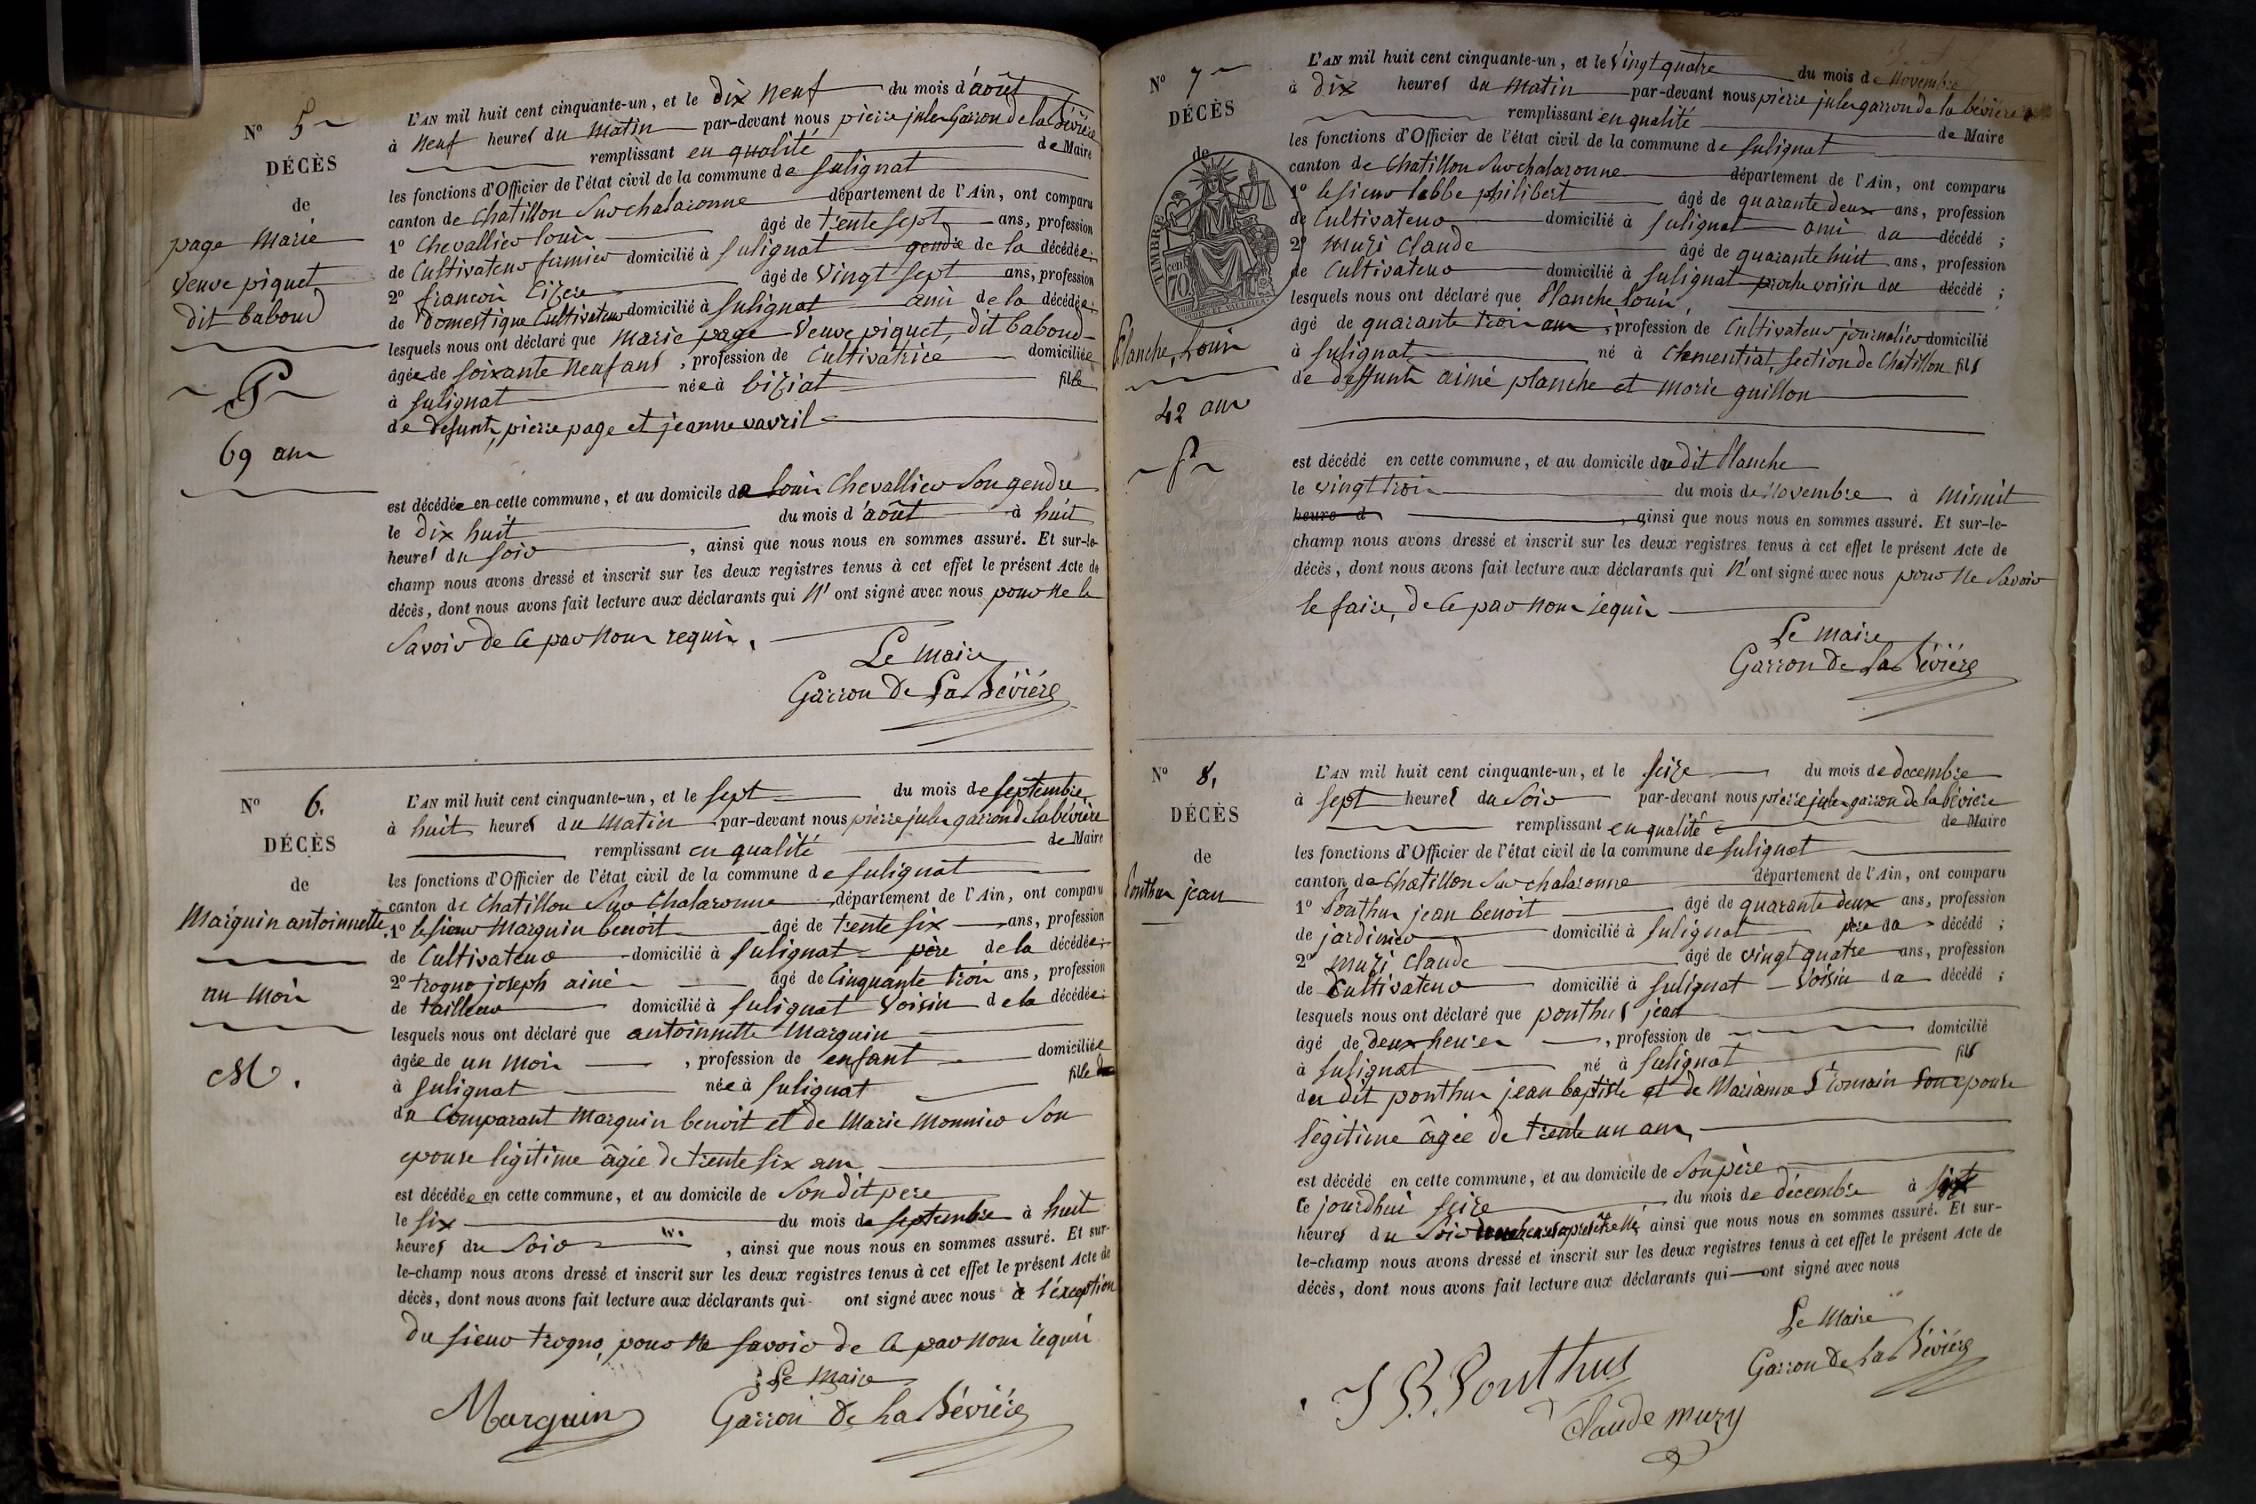 N° 5
DÉCÈS
de
page Marie
veuve piquet
dit baboud
P
69 ans
L'AN mil huit cent cinquante-un, et le dix neuf du mois d'août
à neuf heures du Matin par-devant nous pierre jules Garron de la Bévière
remplissant en qualité de Maire
les fonctions d'Officier de l'état civil de la commune de Sulignat
canton de Chatillon Sur chalaronne département de l'Ain, ont comparu
1° Chevallier louis âgé de trente sept ans, profession
de Cultivateur fermier domicilié à Sulignat gendre de la décédée;
2° françois âgé de Vingt Sept ans, profession
de domestique Cultivateur domicilié à Sulignat ami de la décédée;
lesquels nous ont déclaré que Marie page Veuve piquet, dit baboud
âgée de soixante Neuf ans, profession de Cultivatrice domiciliée
à Sulignat née à biziat fille
de defunts, pierre page et jeanne vavril
est décédée en cette commune, et au domicile de louis Chevallier Son gendre
le dix huit du mois d'août à huit
heures du Soir, ainsi que nous nous en sommes assuré. Et sur-le-
champ nous avons dressé et inscrit sur les deux registres tenus à cet effet le présent Acte de
décès, dont nous avons fait lecture aux déclarants qui N'ont signé avec nous pour Ne le
Savoir de Ce par Nous requis.
Le Maire
Garron De La Bévière
N° 6.
DÉCÈS
de
Marguin antoinnette
un Mois
M.
L'AN mil huit cent cinquante-un, et le Sept du mois de Septembre
à huit heures du Matin par-devant nous pierre jules garron de la bévière
remplissant en qualité de Maire
les fonctions d'Officier de l'état civil de la commune de Sulignat
canton de Chatillon Sur Chalaronne département de l'Ain, ont comparu
1° le sieur Marguin benoit âgé de trente six ans, profession
de Cultivateur domicilié à Sulignat père de la décédée;
2° trogno joseph ainé âgé de Cinquante trois ans, profession
de tailleur domicilié à Sulignat Voisin de la décédée;
lesquels nous ont déclaré que antoinnette Marguin
âgée de un Mois, profession de enfant domiciliée
à Sulignat née à Sulignat fille
du Comparant Marguin benoit et de Marie Monnier Son
epouse légitime âgée de trente six ans
est décédée en cette commune, et au domicile de Son dit pere
le six du mois de Septembre à huit
heures du Soir, ainsi que nous nous en sommes assuré. Et sur-
le-champ nous avons dressé et inscrit sur les deux registres tenus à cet effet le présent Acte de
décès, dont nous avons fait lecture aux déclarants qui ont signé avec nous à l'éxception
du sieur trogno, pour Ne Savoir de Ce par Nous requis
Le Maire
Marguin Garron De La Bévière
N° 7
DÉCÈS
de
TIMBRE
70 cent
Planche, Louis
42 ans
P
L'AN mil huit cent cinquante-un, et le Vingt quatre du mois de Novembre
à dix heures du Matin par-devant nous pierre jules garron de la bévière
remplissant en qualité de Maire
les fonctions d'Officier de l'état civil de la commune de Sulignat
canton de Chatillon Sur chalaronne département de l'Ain, ont comparu
1° le sieur labbe philibert âgé de quarante deux ans, profession
de Cultivateur domicilié à Sulignat ami du décédé;
2° Muzi Claude âgé de quarante huit ans, profession
de Cultivateur domicilié à Sulignat proche voisin du décédé;
lesquels nous ont déclaré que Planche louis,
âgé de quarante trois ans, profession de Cultivateur journalier domicilié
à Sulignat né à Clementiat, section de Chatillon fils
de deffunts aimé planche et Marie guillon
est décédé en cette commune, et au domicile du dit Planche
le vingt trois du mois de Novembre à Minuit
heure d, ainsi que nous nous en sommes assuré. Et sur-le-
champ nous avons dressé et inscrit sur les deux registres tenus à cet effet le présent Acte de
décès, dont nous avons fait lecture aux déclarants qui N'ont signé avec nous pour Ne Savoir
le faire, de Ce par Nous requis
Le Maire
Garron De La Bévière
N° 8.
DÉCÈS
de
Ponthus jean
L'AN mil huit cent cinquante-un, et le Seize du mois de decembre
à Sept heures du Soir par-devant nous pierre jules garron de la bévière
remplissant en qualité de Maire
les fonctions d'Officier de l'état civil de la commune de Sulignat
canton de Chatillon Sur chalaronne département de l'Ain, ont comparu
1° Ponthus jean benoit âgé de quarante deux ans, profession
de jardinier domicilié à Sulignat père du décédé;
2° Muzi Claude âgé de vingt quatre ans, profession
de Cultivateur domicilié à Sulignat Voisin du décédé;
lesquels nous ont déclaré que ponthus jean
âgé de deux heures, profession de domicilié
à Sulignat né à Sulignat fils
du dit ponthus jean baptiste et de Marianne St romain Son epouse
légitime âgée de trente un ans,
est décédé en cette commune, et au domicile de Son père
Ce jourdhui Seize du mois de décembre à
heures du Soir ainsi que nous nous en sommes assuré. Et sur-
le-champ nous avons dressé et inscrit sur les deux registres tenus à cet effet le présent Acte de
décès, dont nous avons fait lecture aux déclarants qui ont signé avec nous
Le Maire
J B. Ponthus Garron De La Bévière
Claude muzy